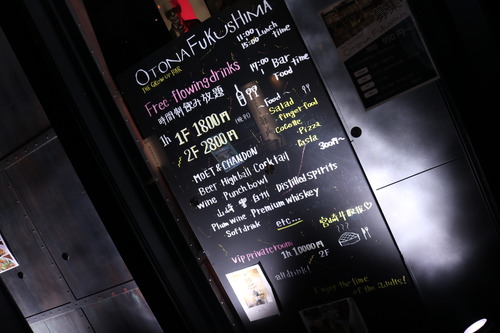 OTONA FUKUSHIMA
THE GROWN UP TIME
11:00
15:00 Lunch time
Free flowing drinks
時間制飲み放題
17:00
Bar time
Food
1h 1F 1800円
2F 2800円
~Food~
Salad
Finger food
Cocotte
Pizza
Pasta
300円~
MOET & CHANDON
Beer Highball Cocktail
Wine Punch bowl
山崎 響 白州 Distilled spirits
Plum wine Premium whiskey
Soft drink etc...
宮崎牛取扱♡
???
VIP private room
1h 10000円
all drink! 2F
Enjoy the time
of the adults!